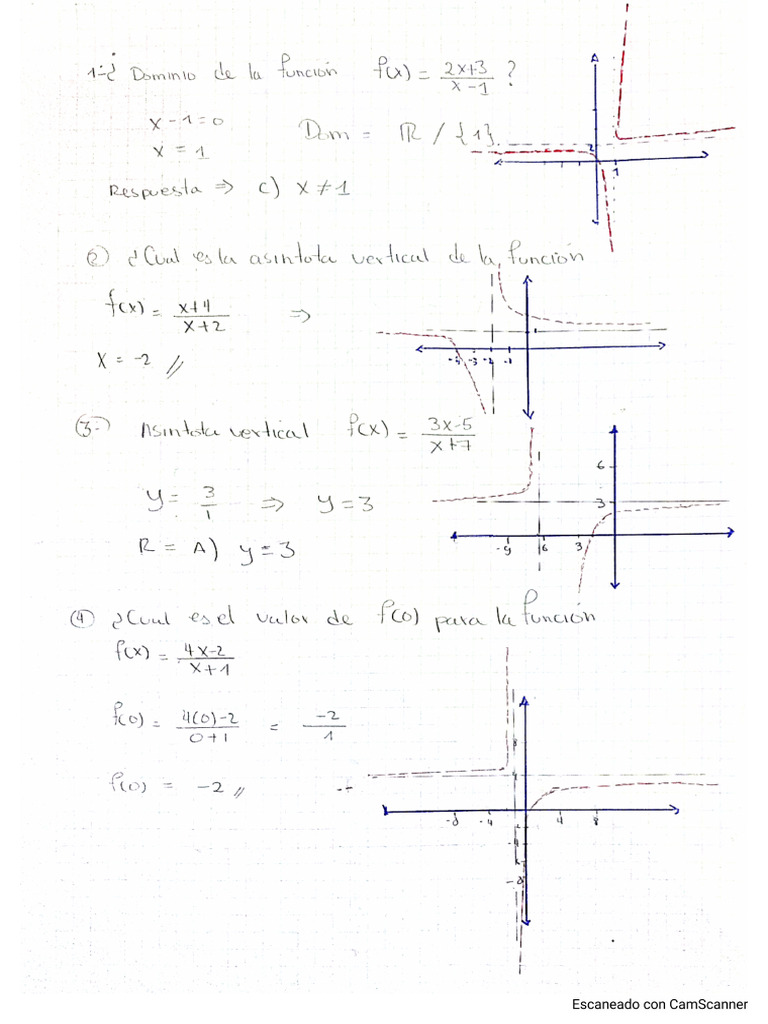 1-¿ Dominio de la función f(x) = 2x+3 / x-1 ?
x-1=0 Dom = ℝ / {1}
x = 1
Respuesta ⇒ c) x ≠ 1
2
1
② ¿Cual es la asintota vertical de la función
f(x) = x+4 / x+2 ⇒
x = -2 //
-4 -3 -2 -1
③-) Asintota vertical f(x) = 3x-5 / x+7
y = 3/1 ⇒ y = 3
R = A) y = 3
6
3
-9 6 3
④ ¿Cual es el valor de f(0) para la función
f(x) = 4x-2 / x+1
f(0) = 4(0)-2 / 0+1 = -2 / 1
f(0) = -2 //
-8 -4 4 8
-4
-8
Escaneado con CamScanner